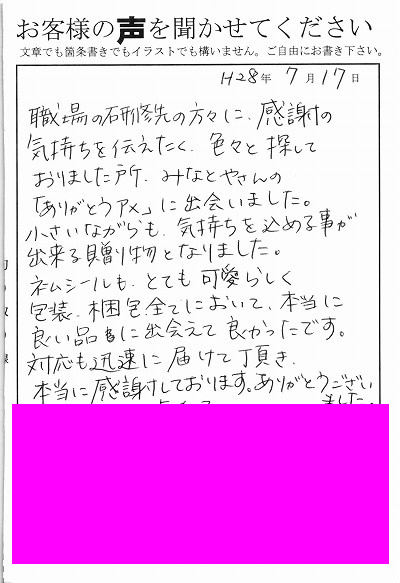 お客様の声を聞かせてください
文章でも箇条書きでもイラストでも構いません。ご自由にお書き下さい。
H28年 7月17日
職場の研修先の方々に、感謝の
気持ちを伝えたく、色々と探して
おりました所、みなとやさんの
「ありがとうアメ」に出会いました。
小さいながらも、気持ちを込める事が
出来る贈り物となりました。
ネームシールも、とても可愛らしく
包装、梱包全てにおいて、本当に
良い品に出会えて良かったです。
対応も迅速に届けて頂き、
本当に感謝しております。ありがとうござい
ました。